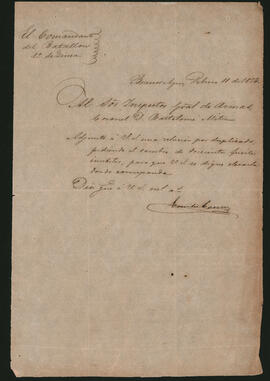 El Comandante
del Batallon
1º de Linea
Buenos Ayres, Febrero 11 de 1854
Al Sor Inspector Gral de Armas
Coronel D. Bartolomé Mitre
Adjunto á V.S. una relacion por duplicado
pidiendo el cambio de fusiles
inutiles, para que V.S. se digne elevarla
donde corresponda
Dios gue á V.S. ms as